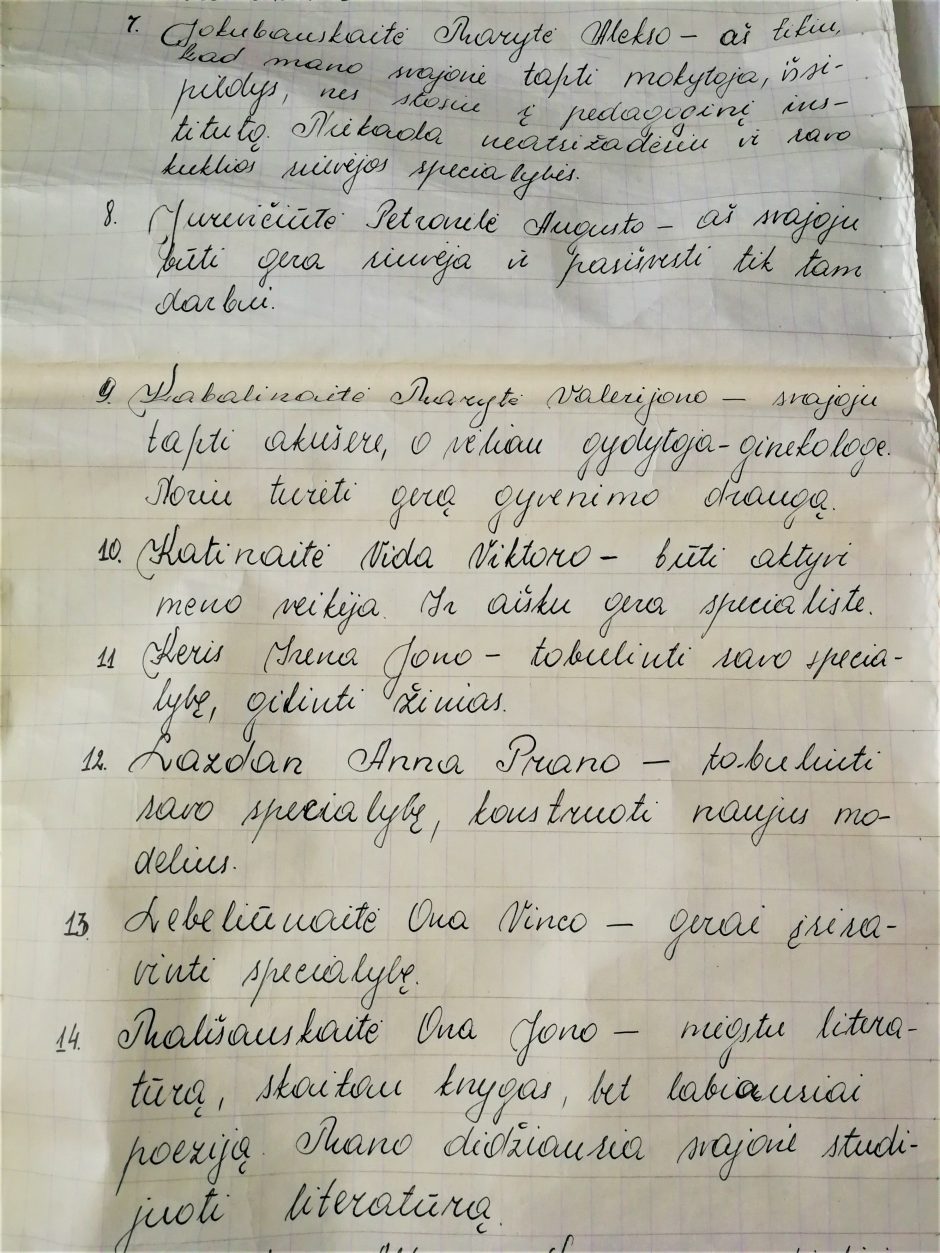 7. Jokubauskaitė Marytė Alekso – aš tikiu,
kad mano svajonė tapti mokytoja, išsi-
pildys, nes stosiu į pedagoginį ins-
titutą. Niekada neatsižadėsiu ir savo
kuklios siuvėjos specialybės.
8. Jurevičiūtė Petronelė Augusto – aš svajoju
būti gera siuvėja ir pasišvęsti tik tam
darbui.
9. Kabalinaitė Marytė Valerijono – svajoju
tapti akušere, o vėliau gydytoja-ginekologe.
Noriu turėti gerą gyvenimo draugą.
10. Katinaitė Vida Viktoro – būti aktyvi
meno veikėja. Ir aišku gera specialiste.
11 Keris Irena Jono – tobulinti savo specia-
lybę, gilinti žinias.
12. Lazdan Anna Prano – tobulinti
savo specialybę, konstruoti naujus mo-
delius.
13. Lebeliūnaitė Ona Vinco – gerai įsisa-
vinti specialybę.
14. Mališauskaitė Ona Jono – mėgstu litera-
tūrą, skaitau knygas, bet labiausiai
poeziją. Mano didžiausia svajonė studi-
juoti literatūrą.